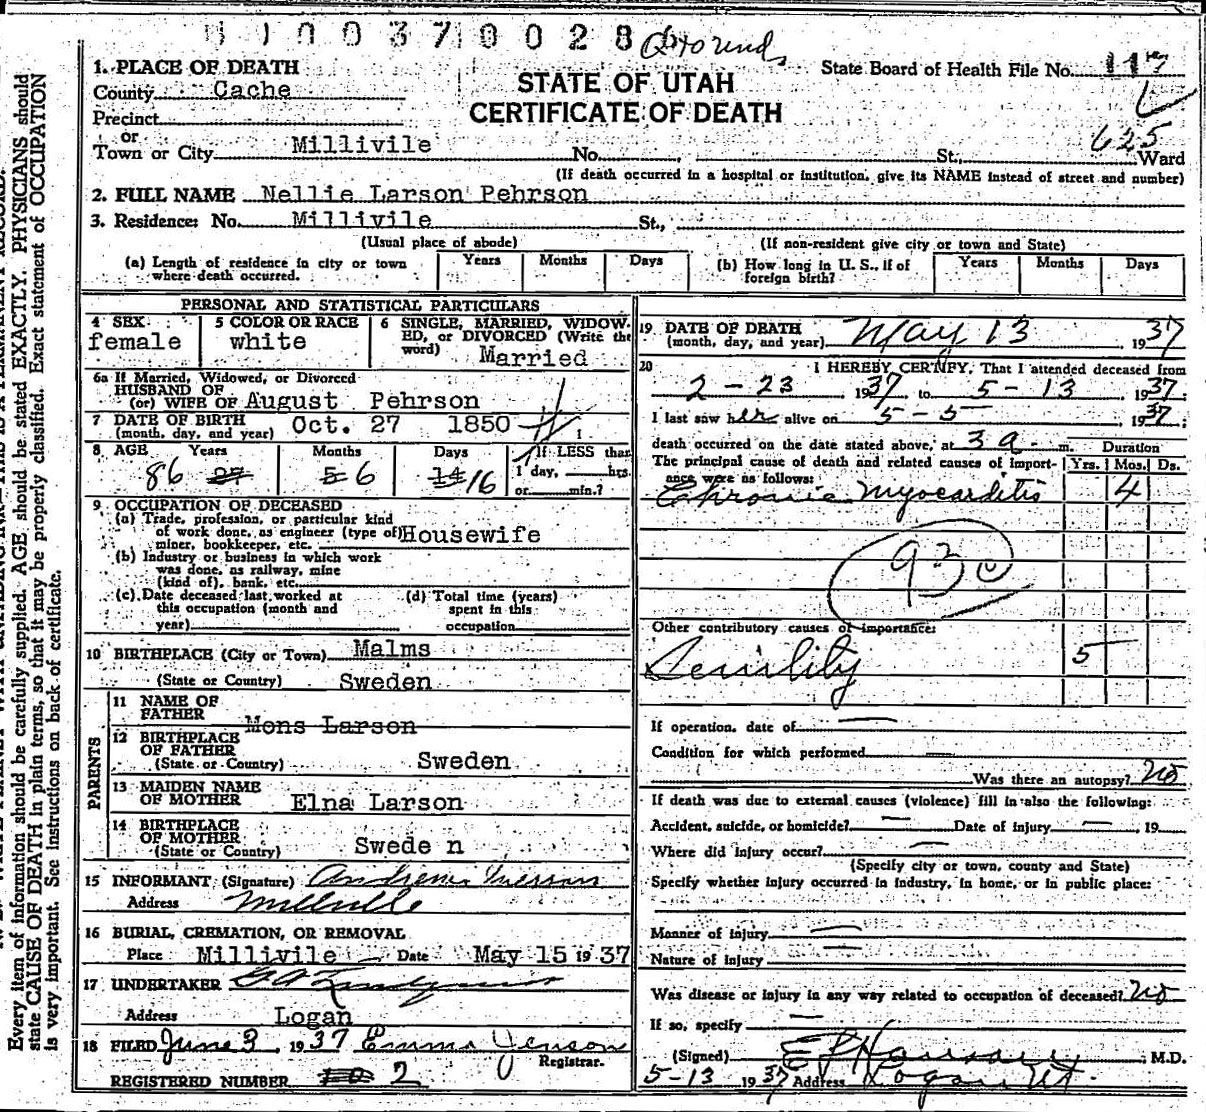 1 1 0 0 3 7 0 0 2 8 6
1. PLACE OF DEATH
County Cache
Precinct
or
Town or City Millivile
STATE OF UTAH
CERTIFICATE OF DEATH
State Board of Health File No.
625
No. , St., Ward
(If death occurred in a hospital or institution, give its NAME instead of street and number)
2. FULL NAME Nellie Larson Pehrson
3. Residence: No. Millivile St.,
(Usual place of abode) (If non-resident give city or town and State)
(a) Length of residence in city or town where death occurred. Years Months Days
(b) How long in U. S., if of foreign birth? Years Months Days
PERSONAL AND STATISTICAL PARTICULARS
4 SEX female
5 COLOR OR RACE white
6 SINGLE, MARRIED, WIDOW-
ED, or DIVORCED (Write the
word) Married
6a If Married, Widowed, or Divorced
HUSBAND OF
(or) WIFE OF August Pehrson
7 DATE OF BIRTH
(month, day, and year) Oct. 27 1850
8 AGE Years Months Days If LESS than
86 27 5 6 14 16 1 day, hrs.
or min.?
9 OCCUPATION OF DECEASED
(a) Trade, profession, or particular kind
of work done, as engineer (type of) Housewife
miner, bookkeeper, etc.
(b) Industry or business in which work
was done, as railway, mine
(kind of), bank, etc.
(c) Date deceased last worked at
this occupation (month and
year)
(d) Total time (years)
spent in this
occupation
10 BIRTHPLACE (City or Town) Malms
(State or Country) Sweden
PARENTS
11 NAME OF
FATHER Mons Larson
12 BIRTHPLACE
OF FATHER
(State or Country) Sweden
13 MAIDEN NAME
OF MOTHER Elna Larson
14 BIRTHPLACE
OF MOTHER
(State or Country) Swede n
15 INFORMANT (Signature)
Address Millville
16 BURIAL, CREMATION, OR REMOVAL
Place Millivile Date May 15 1937
17 UNDERTAKER
Address Logan
18 FILED June 3, 1937 Emma Jenson
Registrar.
REGISTERED NUMBER 10 2
19 DATE OF DEATH
(month, day, and year) May 13, 1937
20 I HEREBY CERTIFY, That I attended deceased from
2-23, 1937 to 5-13 1937;
I last saw her alive on 5-5, 1937;
death occurred on the date stated above, at 3 a. m. Duration
The principal cause of death and related causes of import-
ance were as follows: Yrs. Mos. Ds.
Chronic Myocarditis 4
93
Other contributory causes of importance:
Senility 5
If operation, date of —
Condition for which performed —
Was there an autopsy? no
If death was due to external causes (violence) fill in also the following:
Accident, suicide, or homicide? — Date of injury — , 19
Where did injury occur? —
(Specify city or town, county and State)
Specify whether injury occurred in industry, in home, or in public place:
Manner of injury —
Nature of injury —
Was disease or injury in any way related to occupation of deceased? no
If so, specify —
(Signed) M.D.
5-13 1937 Address Logan Ut.
Every item of information should be carefully supplied. AGE should be stated EXACTLY. PHYSICIANS should
state CAUSE OF DEATH in plain terms, so that it may be properly classified. Exact statement of OCCUPATION
is very important. See instructions on back of certificate.